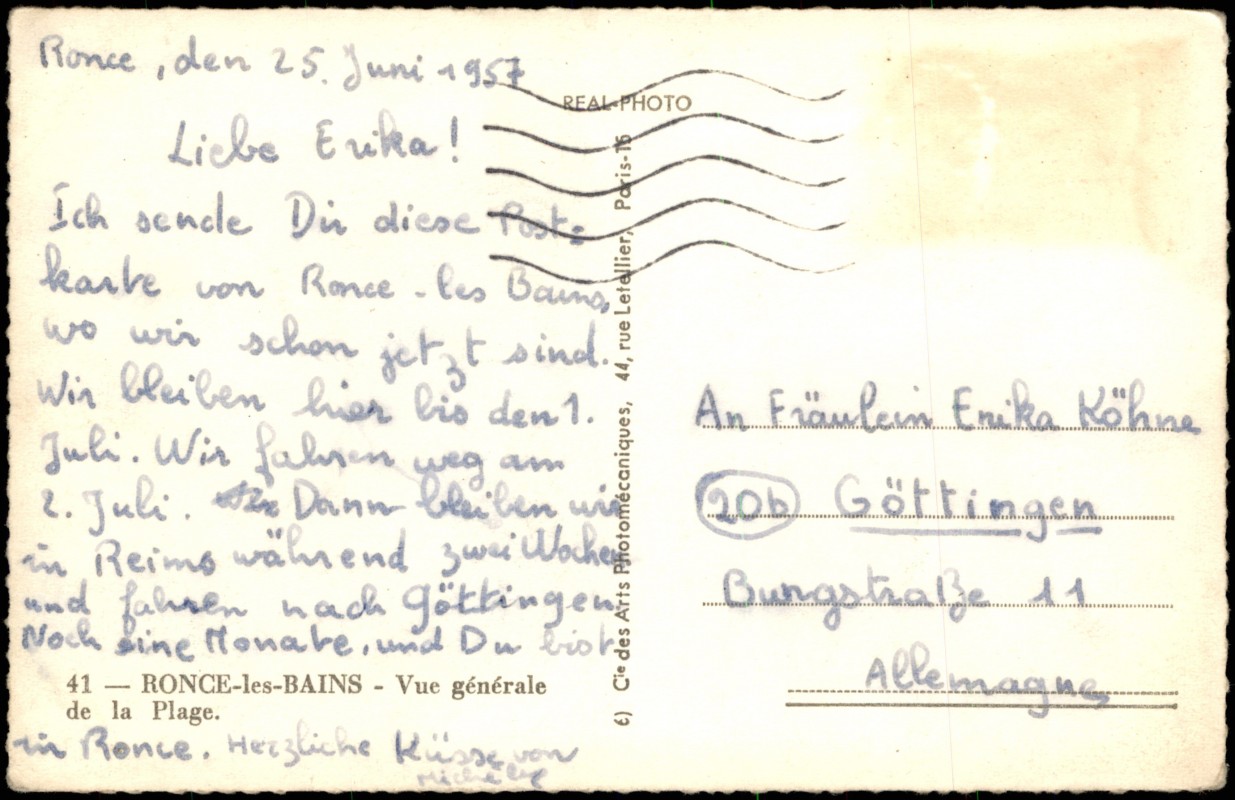 Ronce, den 25. Juni 1957
Liebe Erika!
Ich sende Dir diese Post=
karte von Ronce-les Bains,
wo wir schon jetzt sind.
Wir bleiben hier bis den 1.
Juli. Wir fahren weg am
2. Juli. Dann bleiben wir
in Reims während zwei Wochen
und fahren nach Göttingen.
Noch eine Monate, und Du bist
41 — RONCE-les-BAINS - Vue générale
de la Plage.
in Ronce. Herzliche Küsse von
REAL-PHOTO
Cie des Arts Photomécaniques, 44, rue Letellier, Paris-15
An Fräulein Erika Köhne
20b Göttingen
Burgstraße 11
Allemagne